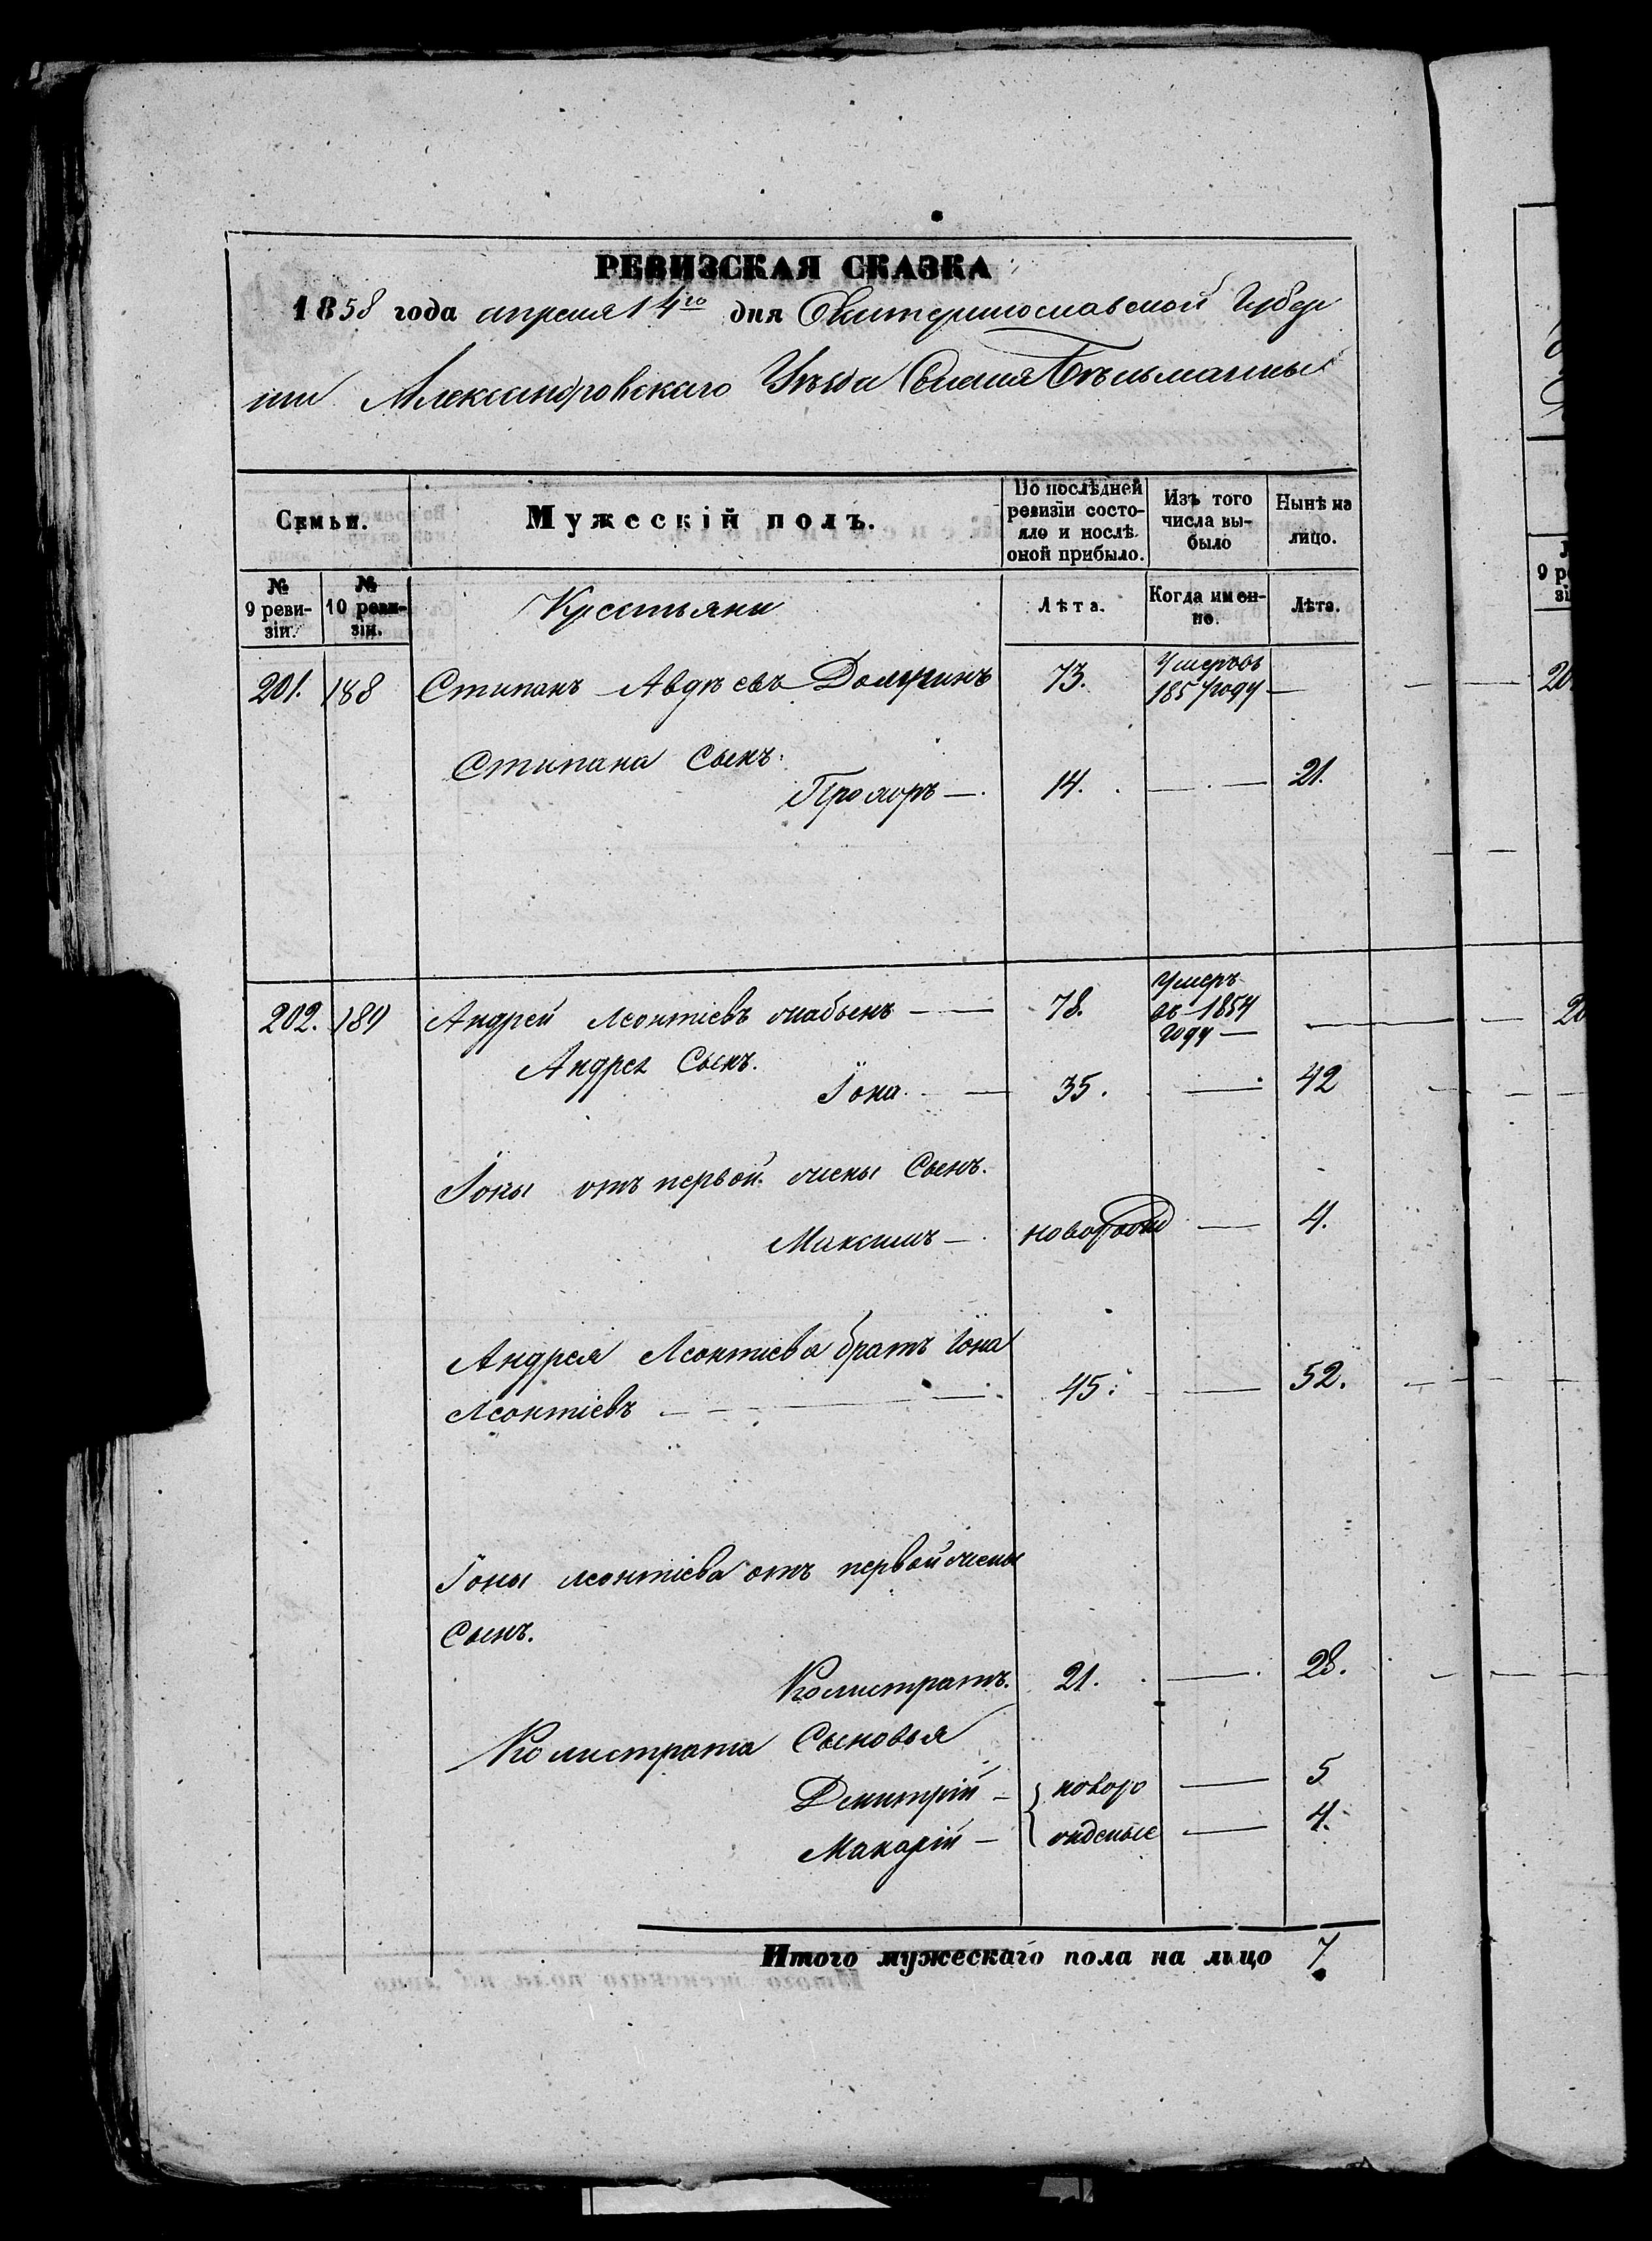 РЕВИЗСКАЯ СКАЗКА
1858 года апреля 14го дня Екатеринославской Губер
нии Александровскаго Уѣзда Селенія Бѣльманкы
Семьи. Мужескій полъ. По послѣдней ревизіи состояло и послѣ оной прибыло. Изъ того числа выбыло Нынѣ на лицо.
№ 9 ревизіи. № 10 ревизіи. Крестьяне Лѣта. Когда именно. Лѣта.
201. 188 Стипанъ Авдѣевъ 73. Умеръ въ 1857 году —
Стипана Сынъ.
14. — 21.
202. 189 Андрей Леонтіевъ — 78. Умеръ въ 1854 году —
Андрея Сынъ.
Іона — 35. — 42
Іоны отъ первой жены Сынъ.
Максимъ — новорожд — 4.
Андрея Леонтіева братъ Іона
Леонтіевъ — 45. — 52.
Іоны Леонтіева отъ первой жены
Сынъ.
Колистратъ. 21. — 28.
Колистрата Сыновья
Демитрій — новоро — 5
Макарій — жденые — 4.
Итого мужескаго пола на лицо 7